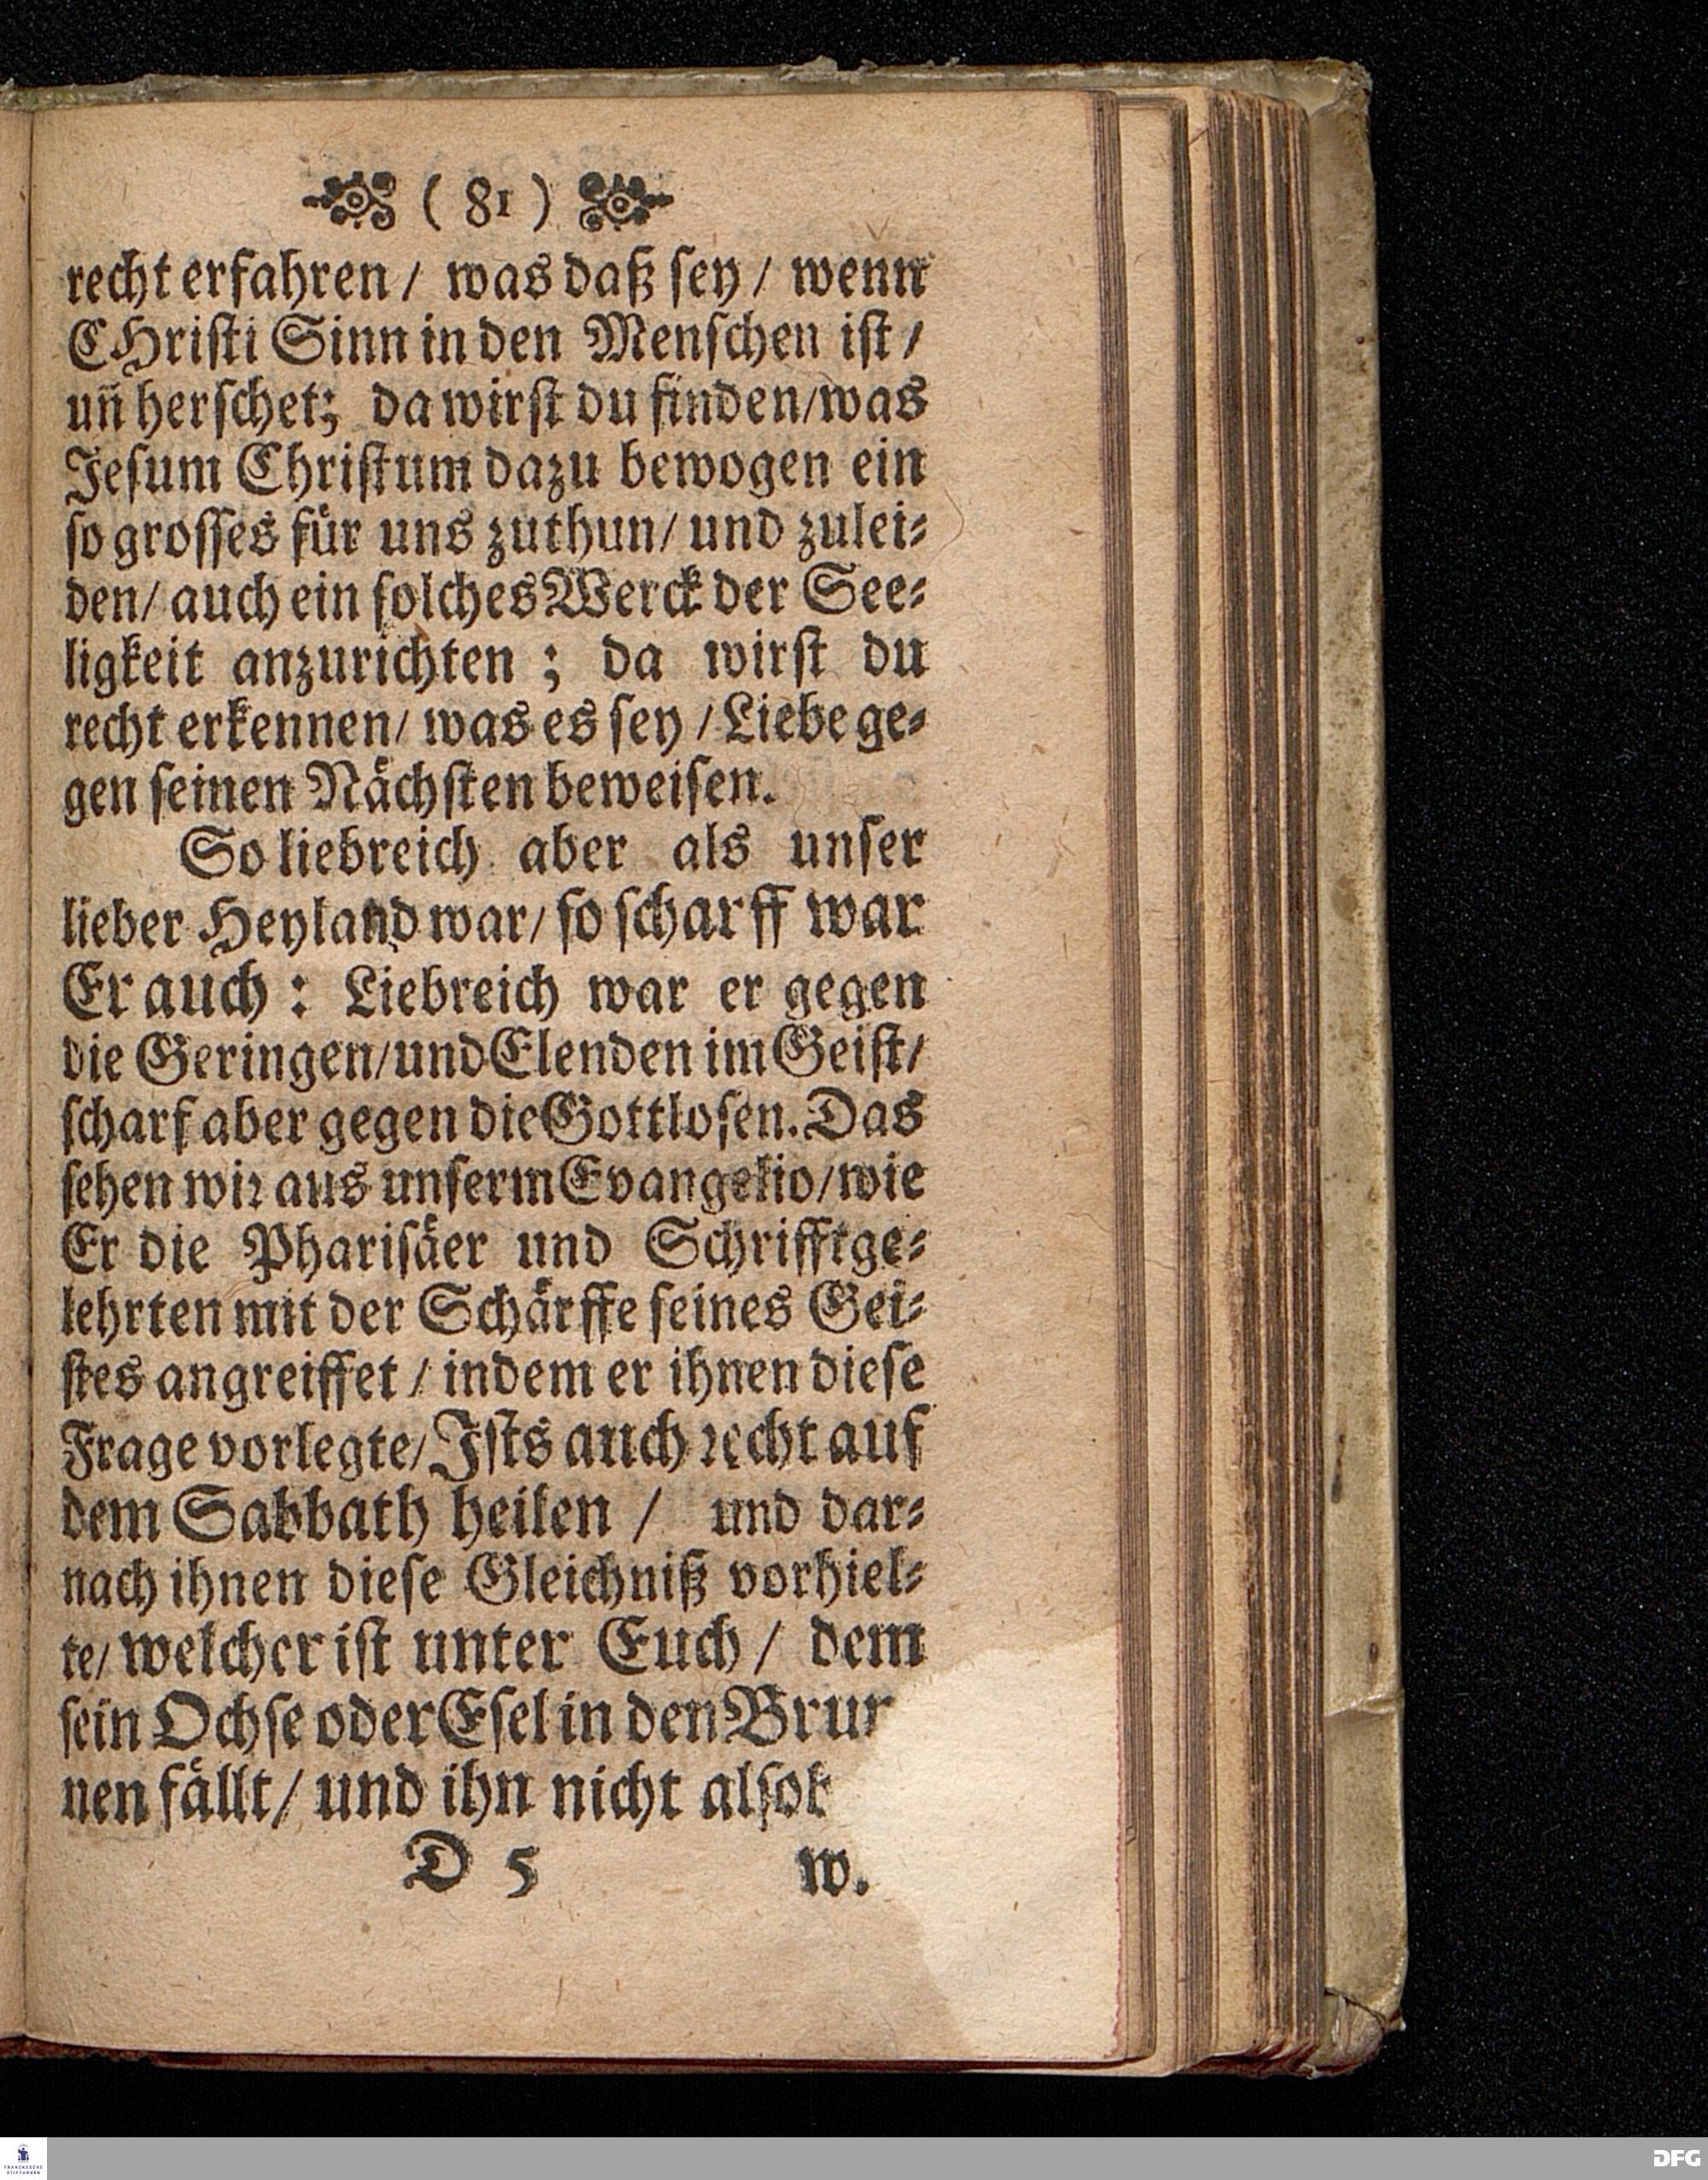 ( 81 )
recht erfahren / was daß sey / wenn
CHristi Sinn in den Menschen ist /
uñ herschet; da wirst du finden/was
Jesum Christum dazu bewogen ein
so grosses für uns zuthun/ und zulei⸗
den/ auch ein solches Werck der See⸗
ligkeit anzurichten ; da wirst du
recht erkennen/ was es sey / Liebe ge⸗
gen seinen Nächsten beweisen.
So liebreich aber als unser
lieber Heyland war/ so scharff war
Er auch : Liebreich war er gegen
die Geringen/und Elenden im Geist/
scharf aber gegen die Gottlosen. Das
sehen wir aus unserm Evangelio/wie
Er die Pharisäer und Schrifftge⸗
lehrten mit der Schärffe seines Gei⸗
stes angreiffet / indem er ihnen diese
Frage vorlegte/ Jsts auch recht auf
dem Sabbath heilen / und dar⸗
nach ihnen diese Gleichniß vorhiel⸗
te/ welcher ist unter Euch / dem
sein Ochse oder Esel in den
nen fällt/ und ihn nicht
D 5
FRANCKESCHE
STIFTUNGEN
DFG